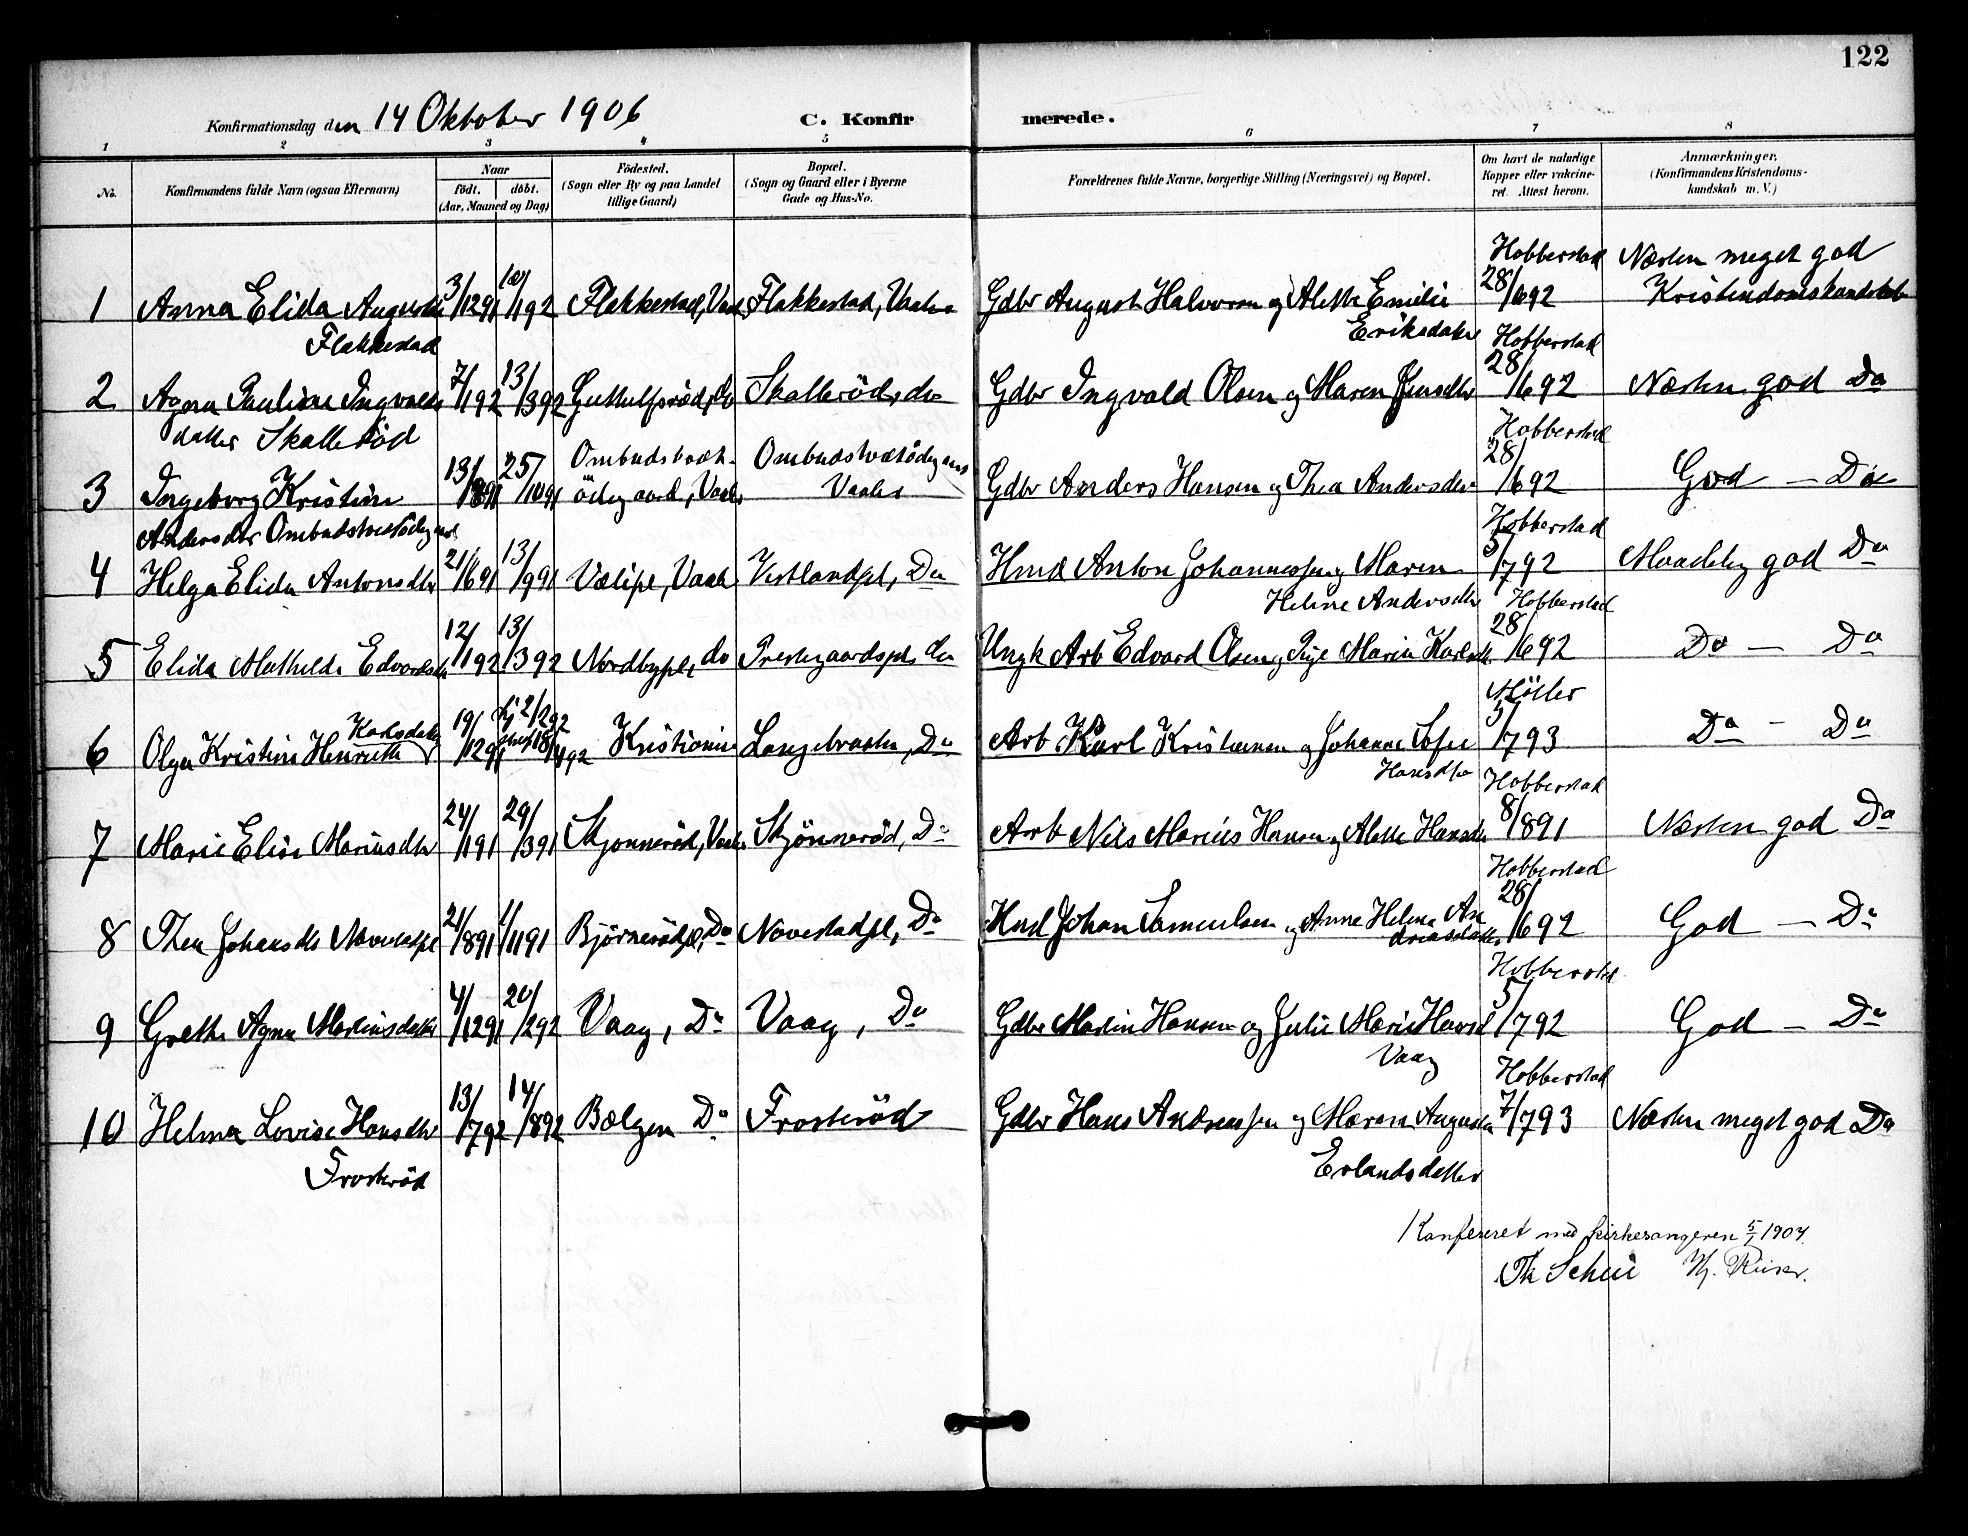 122
Konfirmationsdag den 14 Oktober 1906 C. Konfirmerede.
1 2 3 4 5 6 7 8
No. Konfirmandens fulde Navn (ogsaa Efternavn) Naar født. døbt. (Aar, Maaned og Dag) Fødested. (Sogn eller By og paa Landet tillige Gaard) Bopæl. (Sogn og Gaard eller i Byerne Gade og Hus-No. Forældrenes fulde Navne, borgerlige Stilling (Næringsvei) og Bopæl. Om havt de naturlige Kopper eller vakcineret. Attest herom. Anmærkninger. (Konfirmandens Kristendomskundskab m. V.)
Hobberstad Næsten meget god
1 Anna Elida Augusta 3/12 91 10/1 92 Flakkestad, Flakkestad, Vaaler Gdbr August Halvorsen og Alette Emilie 28/6 92 Kristendomskundskab
Flakkestad Eriksdatter Hobberstad
2 Agna Pauline Ingvalds 7/1 92 13/3 92 Guthulfsrød, Do Skallerød, do Gdbr Ingvald Olsen og Maren Jensdtr 28/6 92 Næsten god Do
datter Skallerød Hobberstad
3 Ingeborg Kristine 13/8 91 25/10 91 Ombudstvedt- ødegaard, Vaaler Ombudstvetødegaard Vaaler Gdbr Anders Hansen og Thea Andersdtr 28/6 92 God – Do
Andersdtr Ombudstvetødegaard Hobberstad
4 Helga Elida Antonsdtr 21/6 91 13/9 91 Vaaler Vestlandpl, Do Hmd Anton Johannessen og Maren 5/7 92 Maadelig god Do
Helene Andersdtr Hobberstad
5 Elida Mathilde Edvardsdtr 12/1 92 13/3 92 Nordbypl, do Prestegaardspl do Ungk Arb Edvard Olsen og Pige Maria Karlsdtr 28/6 92 Do – Do
Karlsdatter Møller
6 Olga Kristine Henriette 19/12 91 Kristiania Langebraaten, Do Arb Karl Kristiansen og Johanne Sofie 5/7 93 Do – Do
Hansdtr Hobberstad
7 Marie Elise Mariusdtr 24/1 91 29/3 91 Skjønnerød, Vaaler Skjønnerød, Do Arb Nils Marius Hansen og Alette Hansdtr 8/8 91 Næsten god Do
Hobberstad
8 Thea Johansdtr Navestadpl 21/8 91 1/11 91 Bjørnerødpl, Do Navestadpl, Do Hmd Johan Samuelsen og Anne Helene An 28/6 92 God – Do
dreasdatter Hobberstad
9 Grethe Agna Martinsdatter 4/12 91 20/2 92 Vaag, Do Vaag, Do Gdbr Martin Hansen og Julie Marie Hansd 5/7 92 God – Do
Vaag Hobberstad
10 Helma Lovise Hansdtr 13/7 92 14/8 92 Bælgen Do Frosterød Gdbr Hans Andreassen og Maren Augusta 7/7 93 Næsten meget god Do
Frosterød Erlandsdatter
Konfereret med kirkesangeren 5/1 1907.
Th Scheie